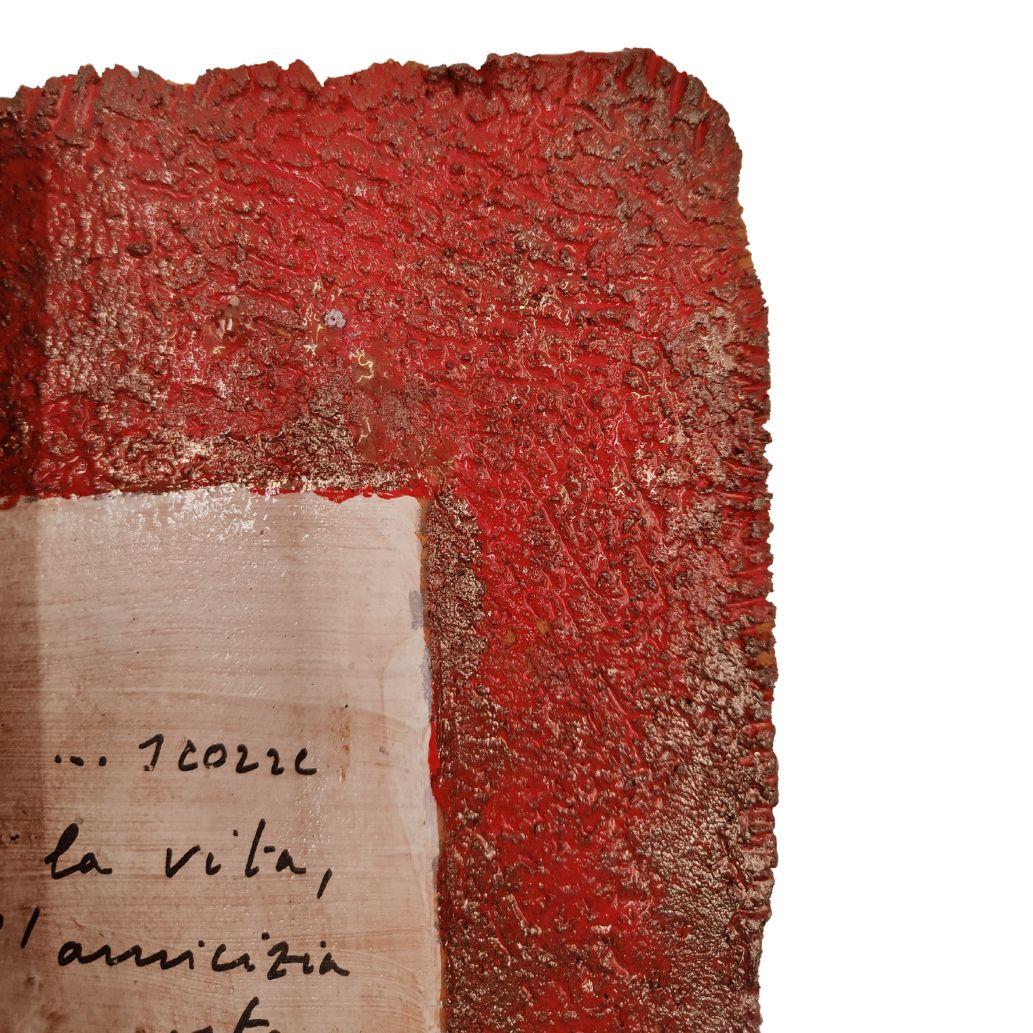 ... scorre
la vita,
l'amicizia